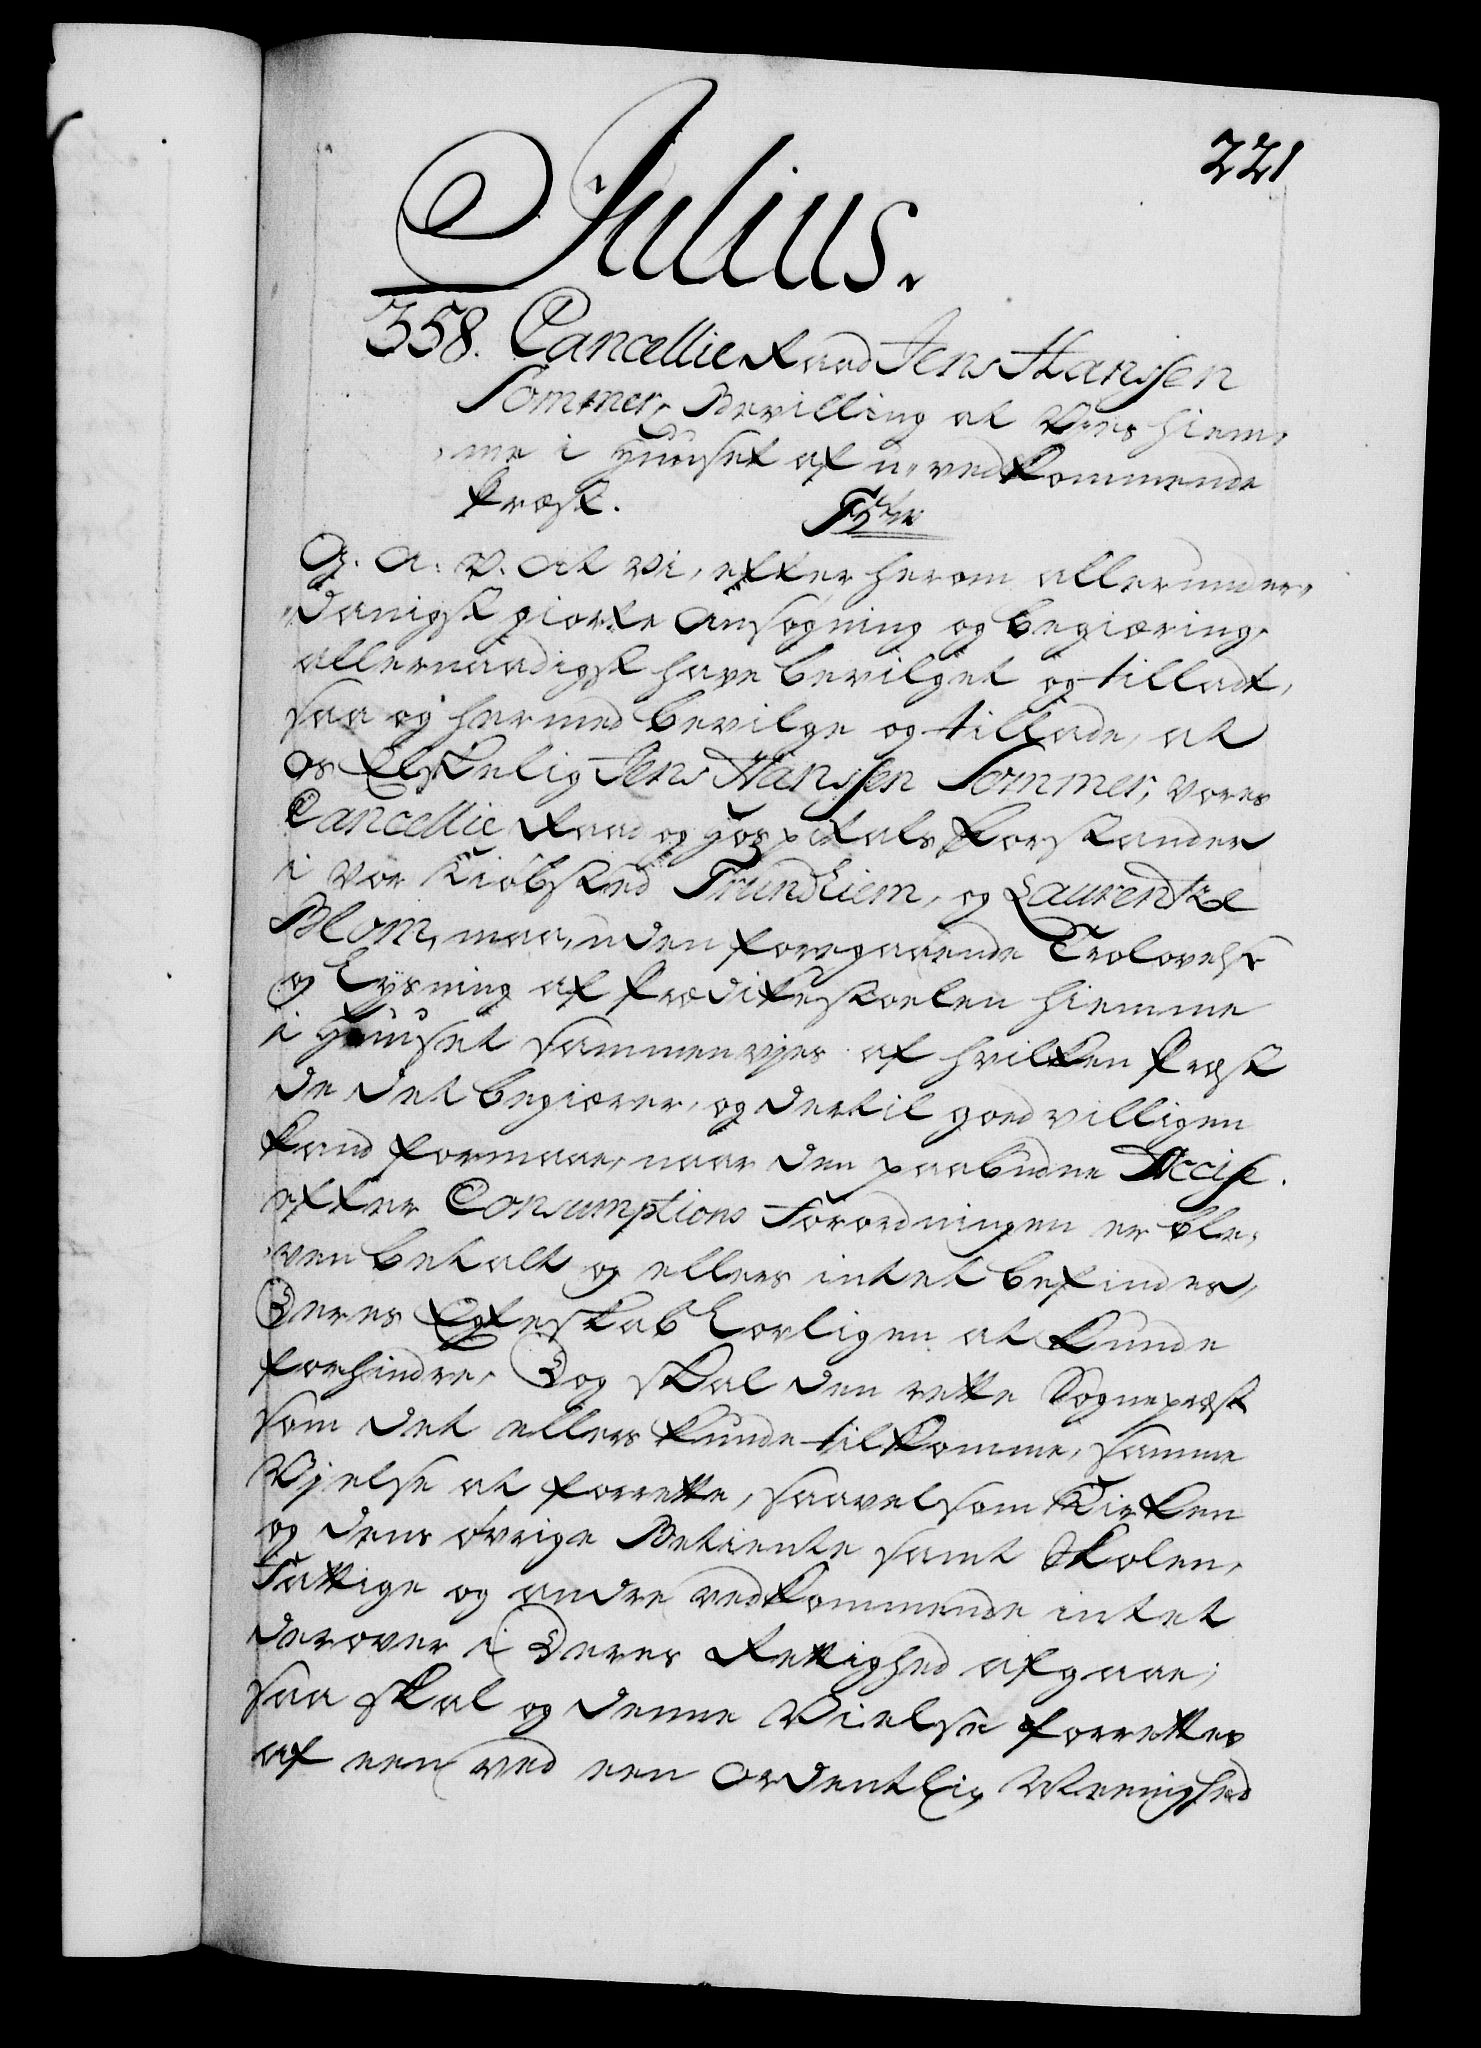 221
Julius.
358. Cancellie Raad Jens Hanssen
Sommer, Bevilling at Vies hiem„
„me i Huuset af u-vedkommende
Præst.
G. A. V. At Vi, efter herom allerunder„
„danigst giorte Ansøgning og begiæring,
allernaadigst have bevilget og tilladt,
saa og hermed bevilge og tillade, at
Os Elskelig Jens Hanssen Sommer, Vores
Cancellie Raad og Hospitals Forstander
i Vor Kiøbsted Trundhiem, og Laurentze
Blom, maa, uden foregaaende Trolovelse
og Lysning af Prædikestoelen hiemme
i Huuset sammenvjes af hvilken Præst
de det begiærer, og dertil goedvilligen
kand formaae, naar den paabudne Accise.
efter Consumptions Forordningen er ble„
„ven betalt og ellers intet befindes,
Deres Egteskab Lovligen at kunde
forhindre, Dog skal den rette Sognepræst
som det ellers kunde tilkomme, samme
Vjelse at forrette, saavelsom Kirken
og dens øvrige Betiente samt Skolen,
Fattige og andre vedkommende intet
derover i Deres Rettighed afgaae;
saa skal og denne Vielse forrettes
af een ved een Ordentlig Meenighed